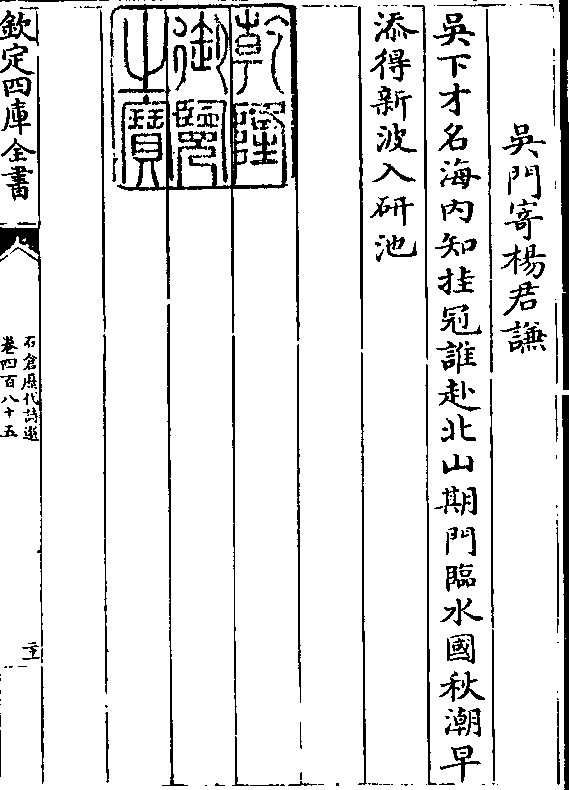 吳門寄楊君謙
吳下才名海内知挂冠誰赴北山期門臨水國秋潮早
添得新波入研池
乾隆
御覽
之寶
欽定四庫全書
石倉歷代詩選
卷四百八十五